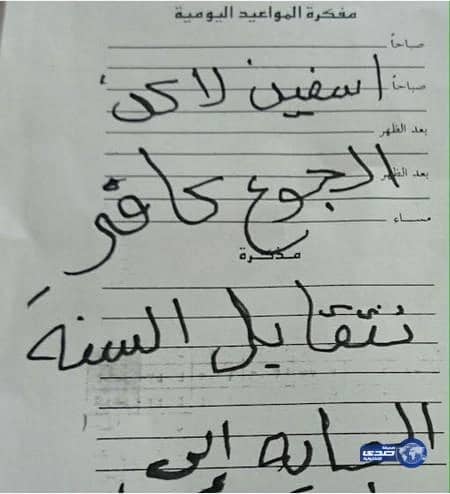 مفكرة المواعيد اليومية
صباحاً
صباحاً
اسفين لاكن
بعد الظهر
بعد الظهر
الجوع كافر
مساء
مذكرة
نتقابل السنة
الجايه إن
صحيفة صدى الالكترونية